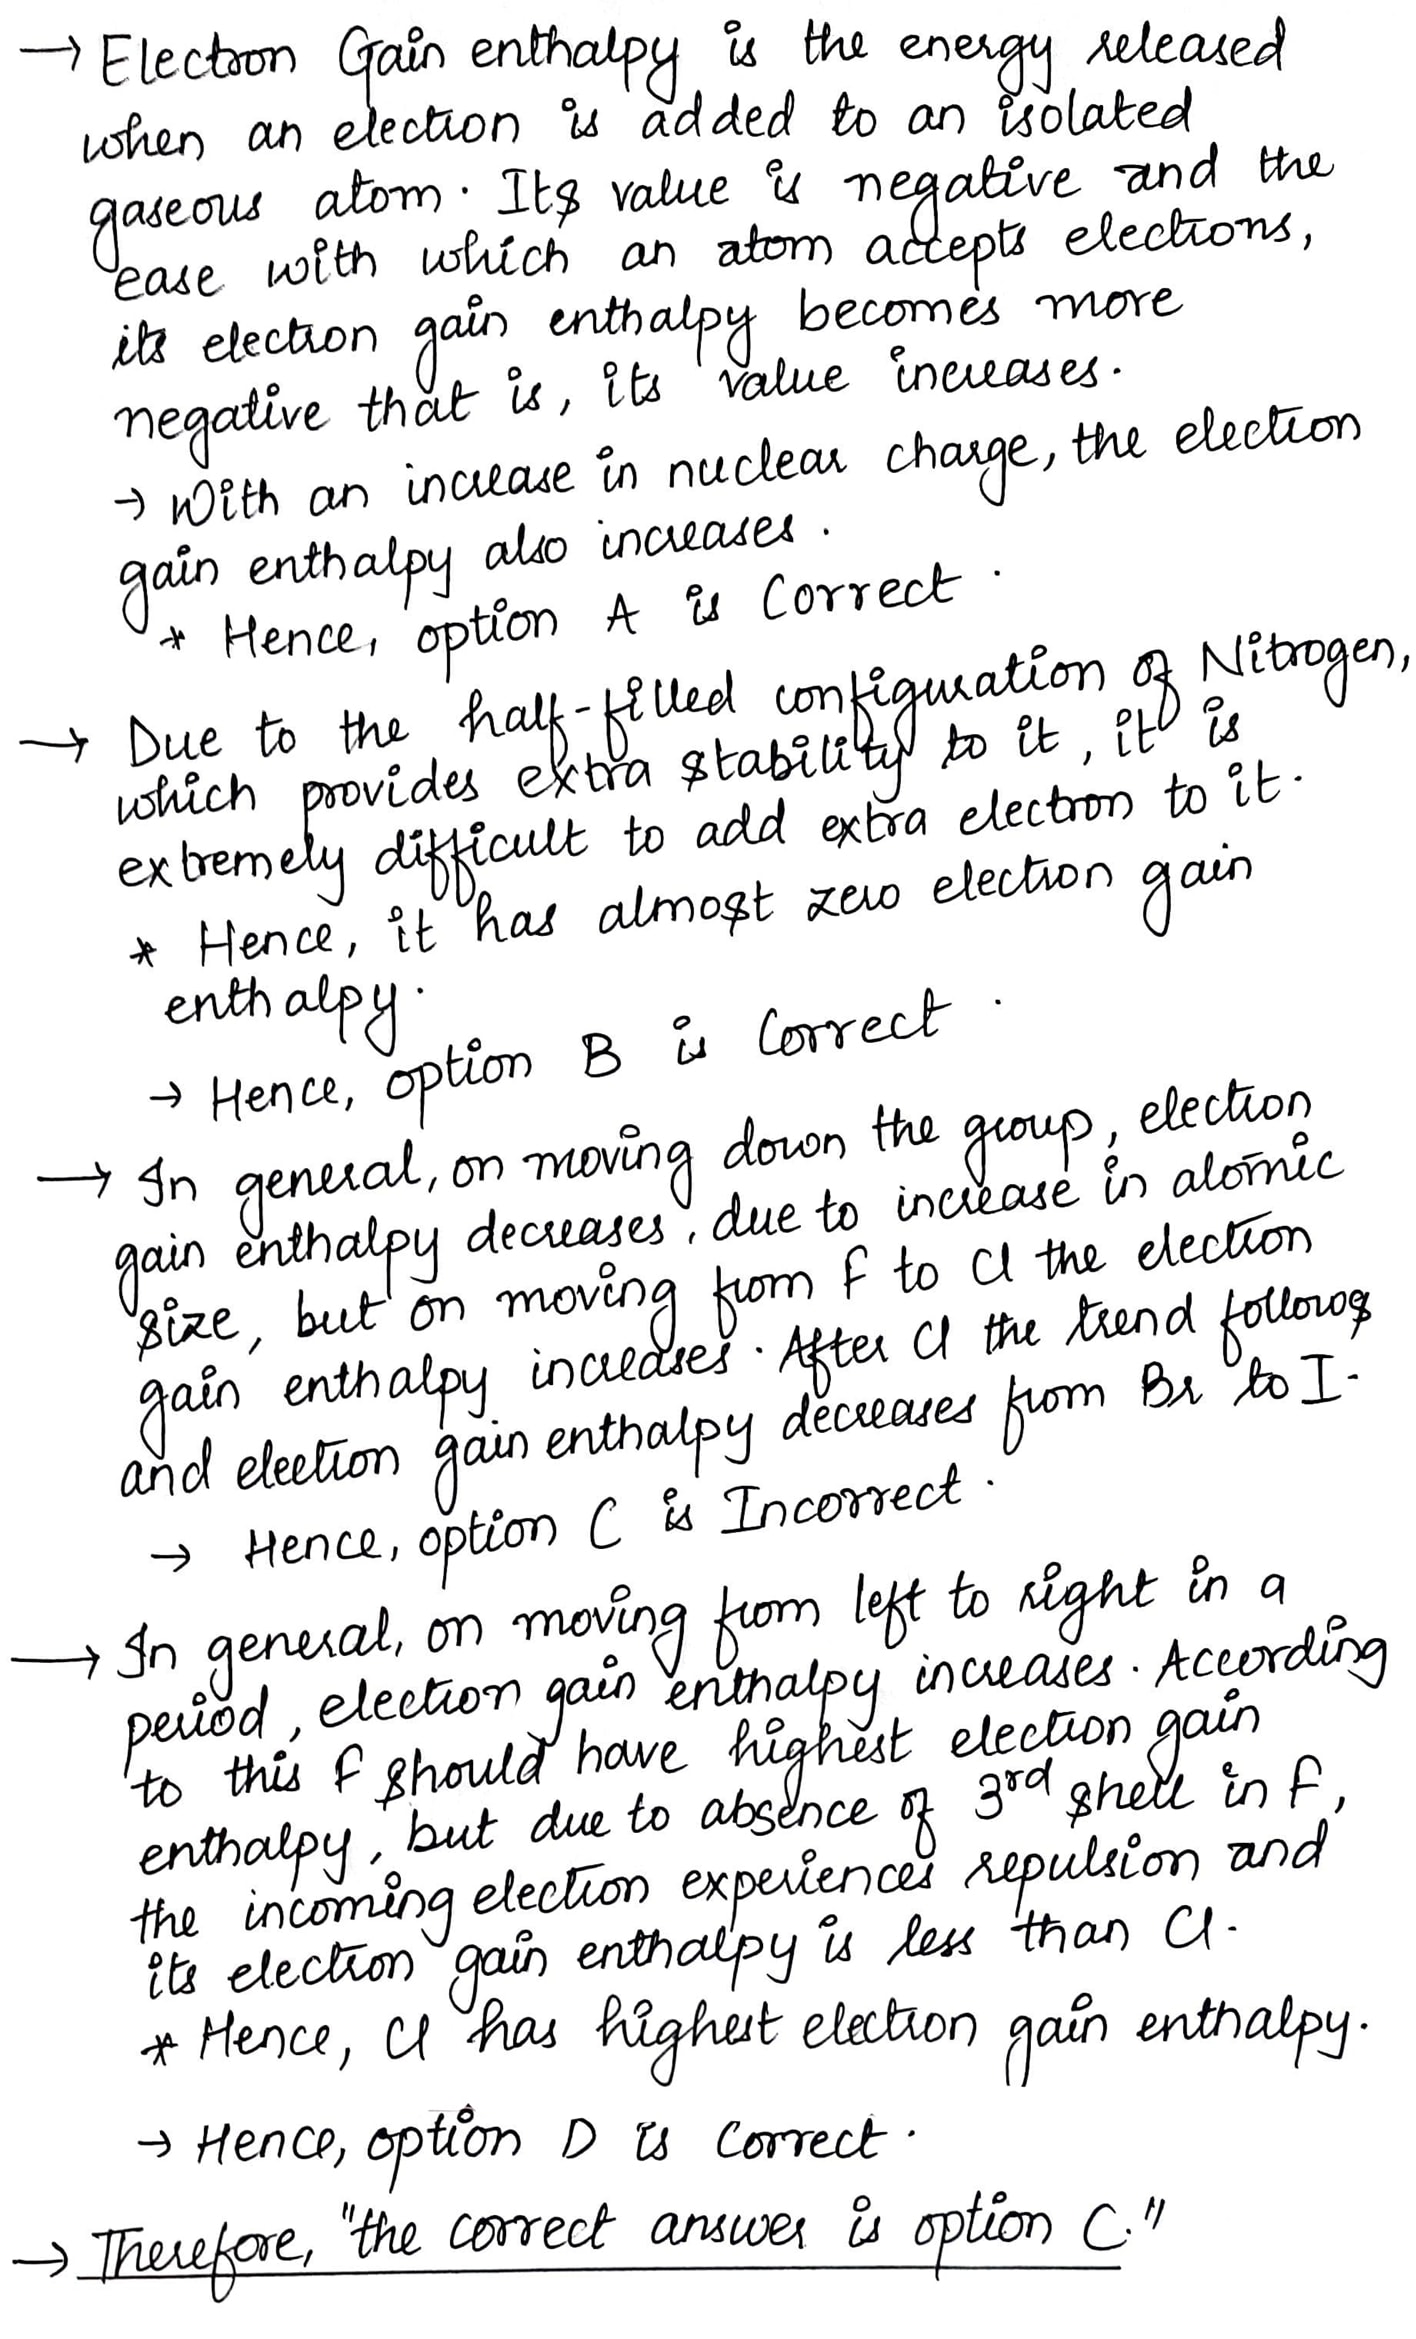 → Electron Gain enthalpy is the energy released
when an electron is added to an isolated
gaseous atom. Its value is negative and the
ease with which an atom accepts electrons,
its electron gain enthalpy becomes more
negative that is, its value increases.
→ With an increase in nuclear charge, the electron
gain enthalpy also increases.
* Hence, option A is Correct.
→ Due to the half-filled configuration of Nitrogen,
which provides extra stability to it, it is
extremely difficult to add extra electron to it.
* Hence, it has almost zero electron gain
enthalpy.
→ Hence, option B is Correct.
→ In general, on moving down the group, electron
gain enthalpy decreases, due to increase in atomic
size, but on moving from F to Cl the electron
gain enthalpy increases. After Cl the trend follows
and electron gain enthalpy decreases from Br to I.
→ Hence, option C is Incorrect.
→ In general, on moving from left to right in a
period, electron gain enthalpy increases. According
to this F should have highest electron gain
enthalpy, but due to absence of 3rd shell in F,
the incoming electron experiences repulsion and
its electron gain enthalpy is less than Cl.
* Hence, Cl has highest electron gain enthalpy.
→ Hence, option D is Correct.
→ Therefore, "the correct answer is option C."